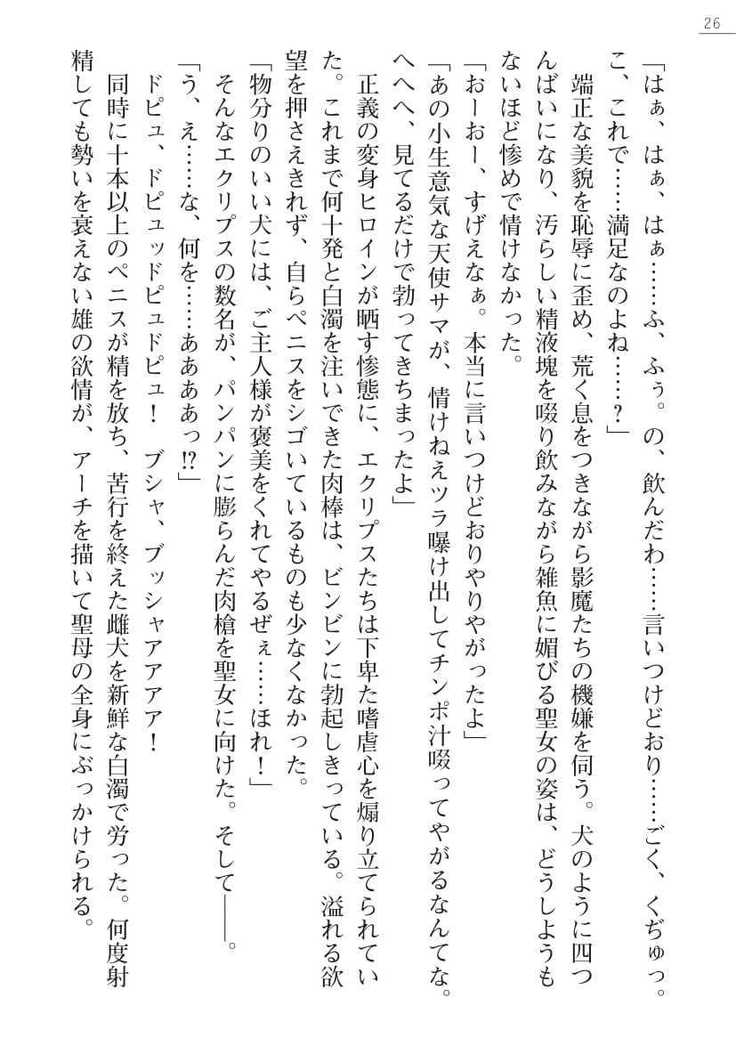 26
「はぁ、はぁ、はぁ……ふ、ふぅ。の、飲んだわ……言いつけどおり……ごく、くぢゅっ。
こ、これで……満足なのよね……？」
端正な美貌を恥辱に歪め、荒く息をつきながら影魔たちの機嫌を伺う。犬のように四つ
んばいになり、汚らしい精液塊を啜り飲みながら雑魚に媚びる聖女の姿は、どうしようも
ないほど惨めで情けなかった。
「おーおー、すげえなぁ。本当に言いつけどおりやりやがったよ」
「あの小生意気な天使サマが、情けねえツラ曝け出してチンポ汁啜ってやがるなんてな。
へへへ、見てるだけで勃ってきちまったよ」
正義の変身ヒロインが晒す惨態に、エクリプスたちは下卑た嗜虐心を煽り立てられてい
た。これまで何十発と白濁を注いできた肉棒は、ビンビンに勃起しきっている。溢れる欲
望を押さえきれず、自らペニスをシゴいているものも少なくなかった。
「物分りのいい犬には、ご主人様が褒美をくれてやるぜぇ……ほれ！」
そんなエクリプスの数名が、パンパンに膨らんだ肉槍を聖女に向けた。そして――。
「う、え……な、何を……ああああっ!?」
ドピュ、ドピュッドピュドピュ！　ブシャ、ブッシャアアアア！
同時に十本以上のペニスが精を放ち、苦行を終えた雌犬を新鮮な白濁で労った。何度射
精しても勢いを衰えない雄の欲情が、アーチを描いて聖母の全身にぶっかけられる。